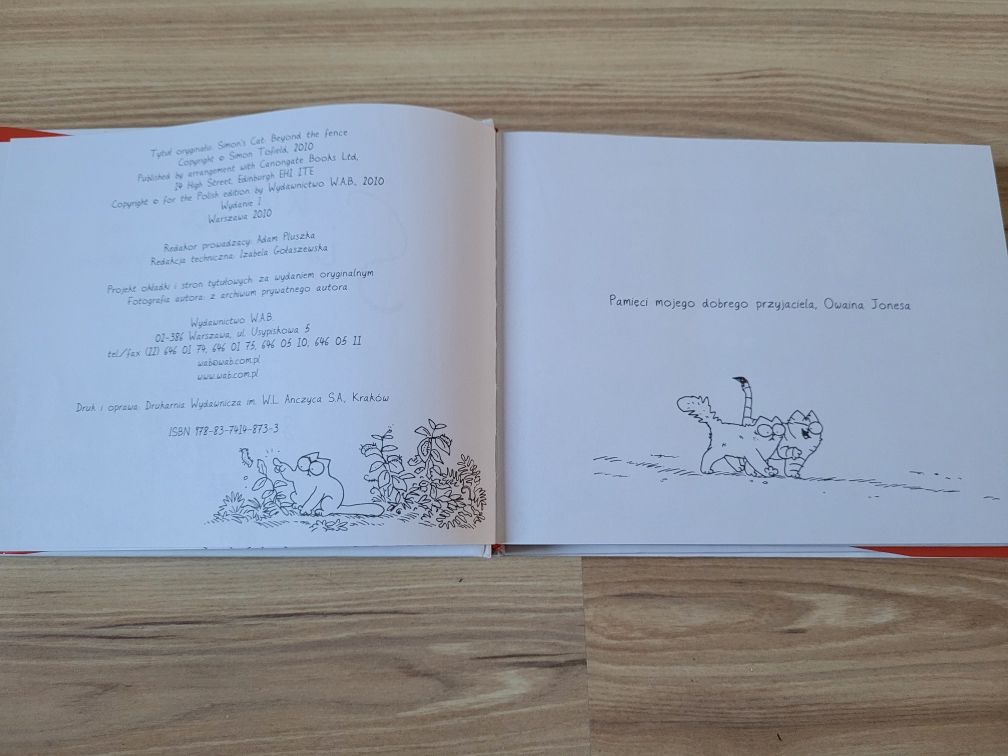 Tytuł oryginału: Simon's Cat. Beyond the fence
Copyright © Simon Tofield, 2010
Published by arrangement with Canongate Books Ltd,
14 High Street, Edinburgh EH1 1TE
Copyright © for the Polish edition by Wydawnictwo W.A.B., 2010
Wydanie I
Warszawa 2010
Redaktor prowadzący: Adam Pluszka
Redakcja techniczna: Izabela Gołaszewska
Projekt okładki i stron tytułowych za wydaniem oryginalnym
Fotografia autora: z archiwum prywatnego autora
Wydawnictwo W.A.B.
02-386 Warszawa, ul. Usypiskowa 5
tel./fax (22) 646 01 74, 646 01 75, 646 05 10, 646 05 11
wab@wab.com.pl
www.wab.com.pl
Druk i oprawa: Drukarnia Wydawnicza im. W.L. Anczyca S.A., Kraków
ISBN 978-83-7414-873-3
Pamięci mojego dobrego przyjaciela, Owaina Jonesa